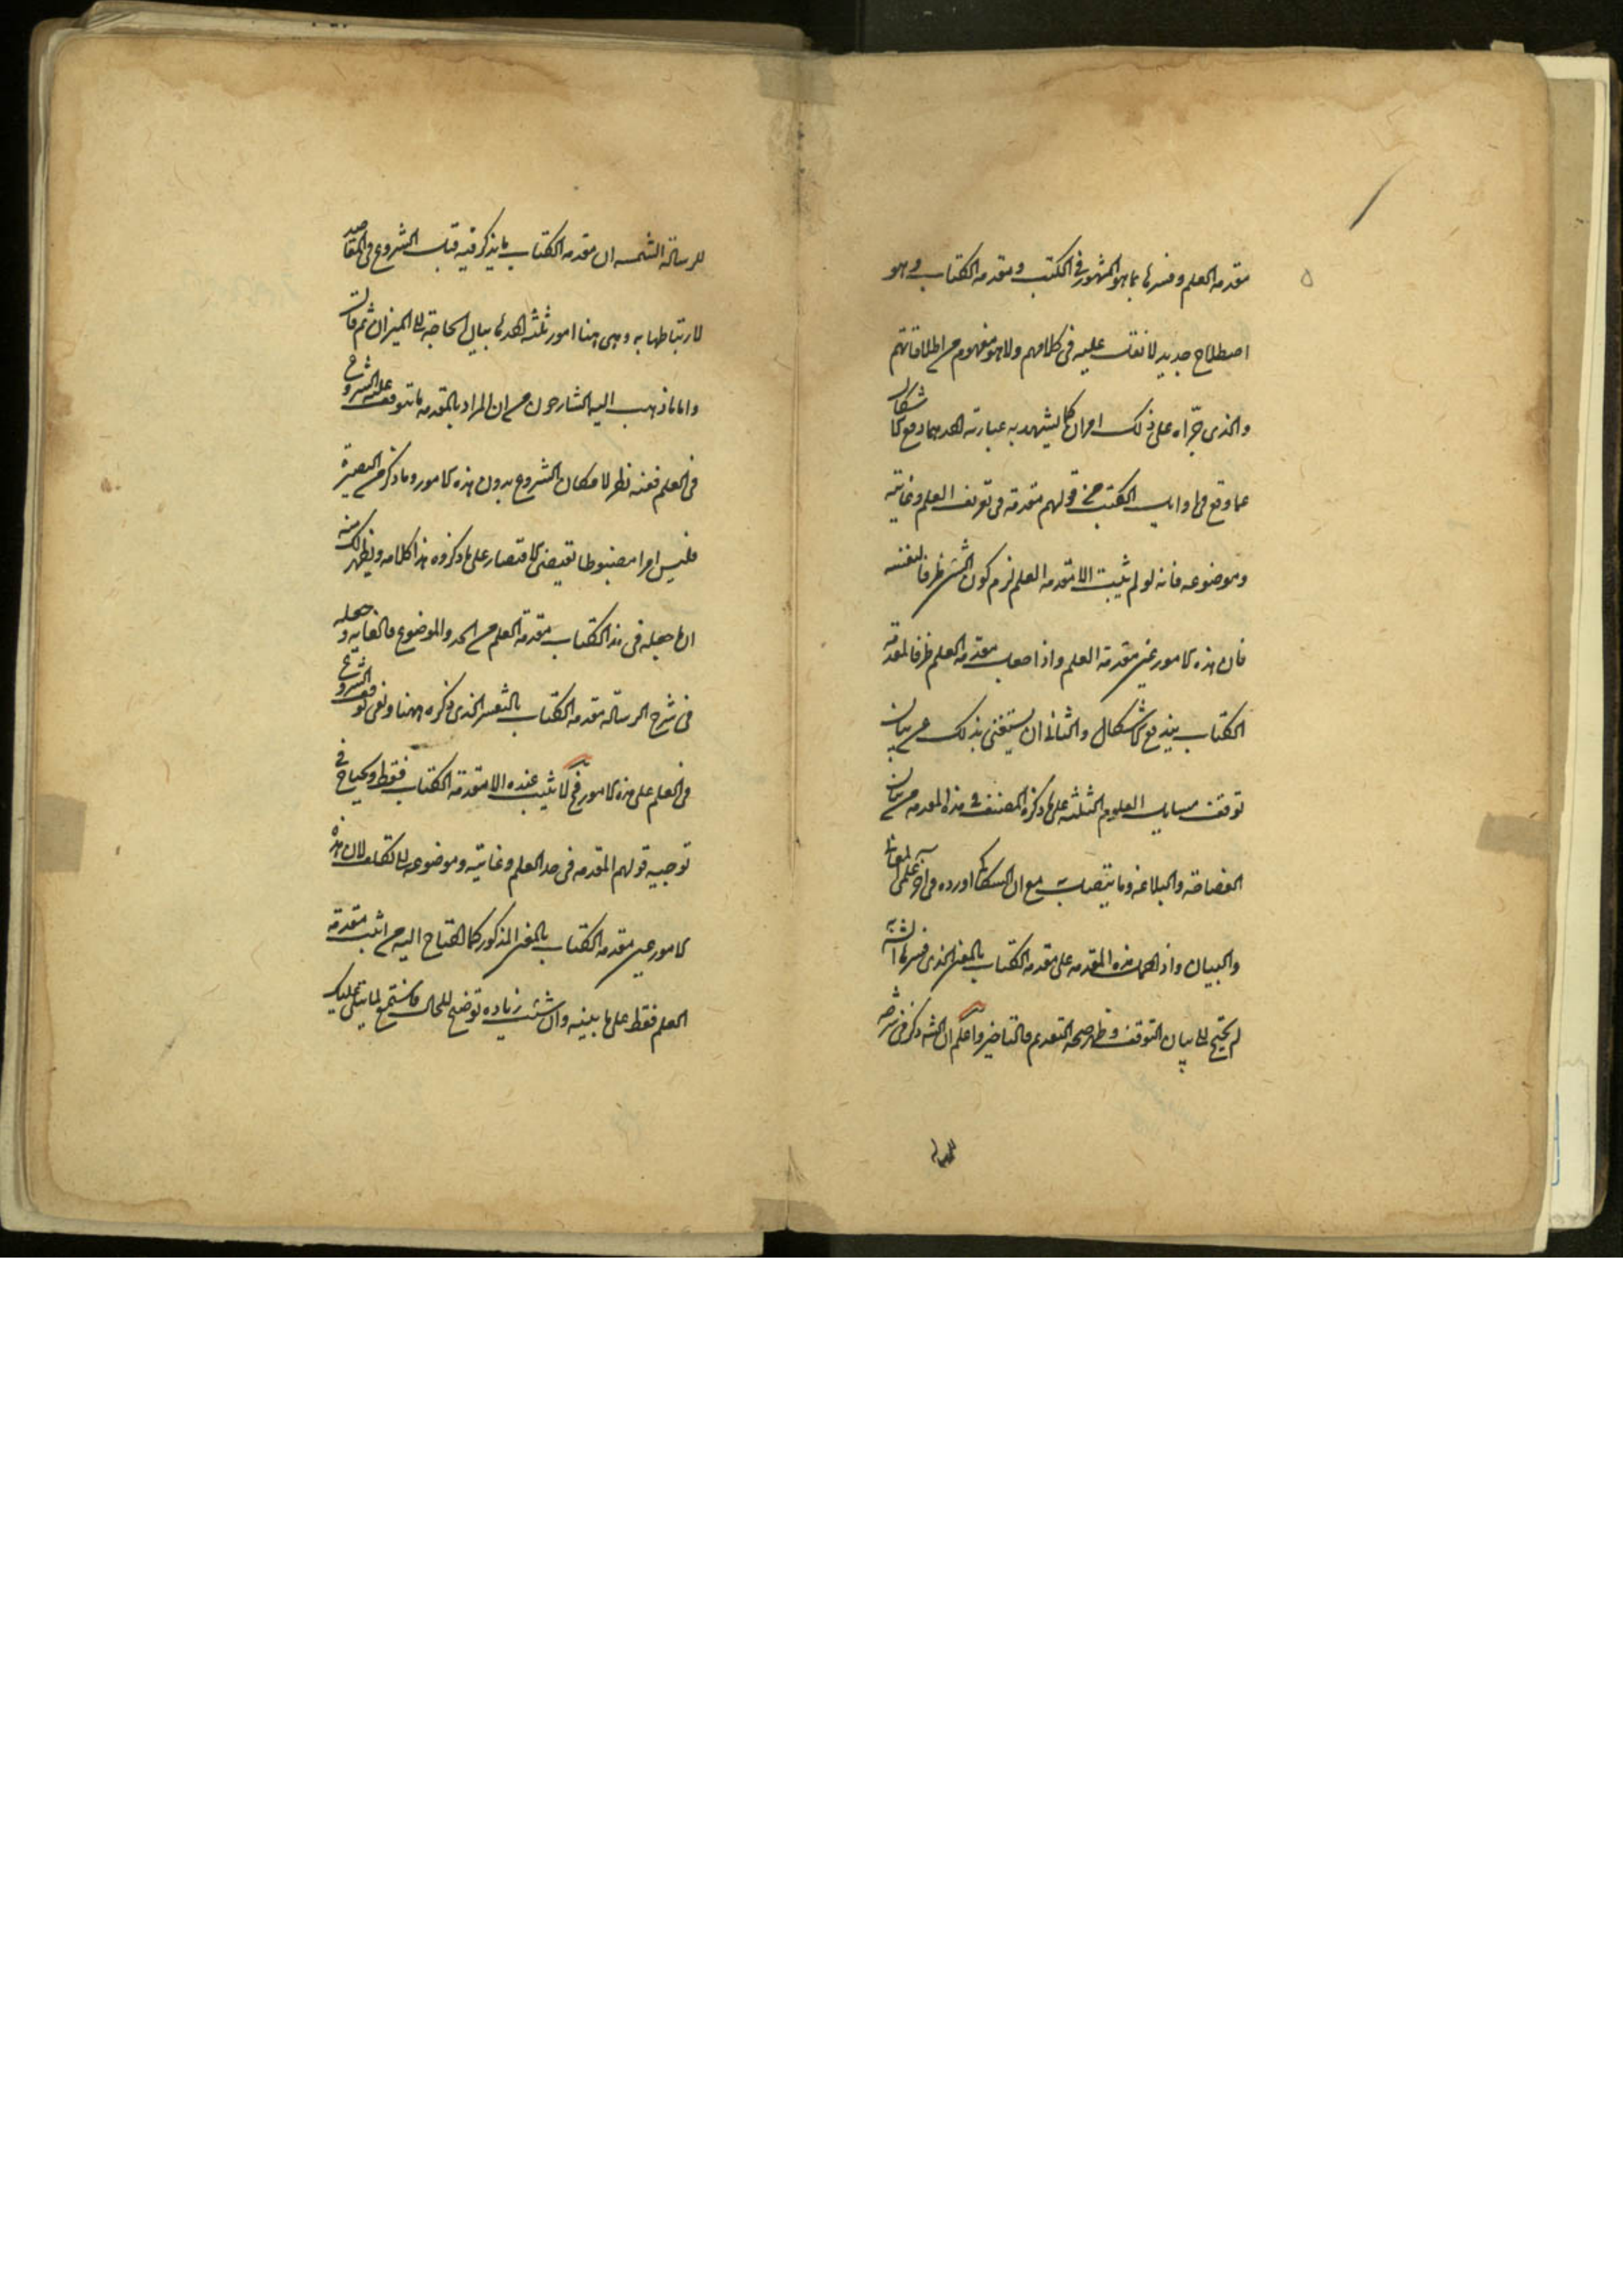 مقدمة العلم وفسرها بما هو المشهور فى الكتب ومقدمة الكتاب وهو
اصطلاح جديد لا نقل عليه فى كلامهم ولا هو مفهوم من اطلاقاتهم
والذى جرّاه على ذلك امران كما يشهد به عبارته احدهما دفع الاشكال
عما وقع فى اوايل الكتب من قولهم مقدمة فى تعريف العلم وغايته
وموضوعه فانه لو لم يثبت الا مقدمة العلم لزم كون الشئ ظرفا لنفسه
فان هذه الامور عين مقدمة العلم واذا جعل مقدمة العلم ظرفا لمقدمة
الكتاب يندفع الاشكال والثانى ان يستغنى بذلك عن بيان
توقف مسايل العلوم الثلثة على ما ذكره المصنف فى هذه المقدمة من بيان
الفصاحة والبلاغة وما يتصل به مع ان السكاكى اورده فى آخر علمى المعانى
والبيان واذا حمل هذه المقدمة على مقدمة الكتاب بالمعنى الذى فسرها الشه به
لم يحتج الى بيان التوقف وظهر صحة التقديم والتاخير واعلم ان الشه ذكر فى شرحه
للرسالة
للرسالة الشمسية ان مقدمة الكتاب ما يذكر فيه قبل الشروع فى المقاصد
لارتباطها به وهى هنا امور ثلثة احدها بيان الحاجة الى الميزان ثم قال
واما ما ذهب اليه الشارحون من ان المراد بالمقدمة ما يتوقف عليه الشروع
فى العلم ففيه نظر لامكان الشروع بدون هذه الامور وما ذكر من البصيرة
فليس امرا مضبوطا يقتضى الاقتصار على ما ذكروه هذا كلامه ويظهر لك منه
ان ما جعله فى هذا الكتاب مقدمة العلم من الحد والموضوع والغاية جعله
فى شرح الرسالة مقدمة الكتاب بالتفسير الذى ذكره ههنا ونفى توقف الشروع
فى العلم على هذه الامور فح لا يثبت عنده الا مقدمة الكتاب فقط ويحتاج فى
توجيه قولهم المقدمة فى حد العلم وغايته وموضوعه الى تكلف لان هذه
الامور عين مقدمة الكتاب بالمعنى المذكور كما احتاج اليه من اثبت مقدمة
العلم فقط على ما بينه وان شئت زيادة توضيح للحال فاستمع لما يتلى عليك